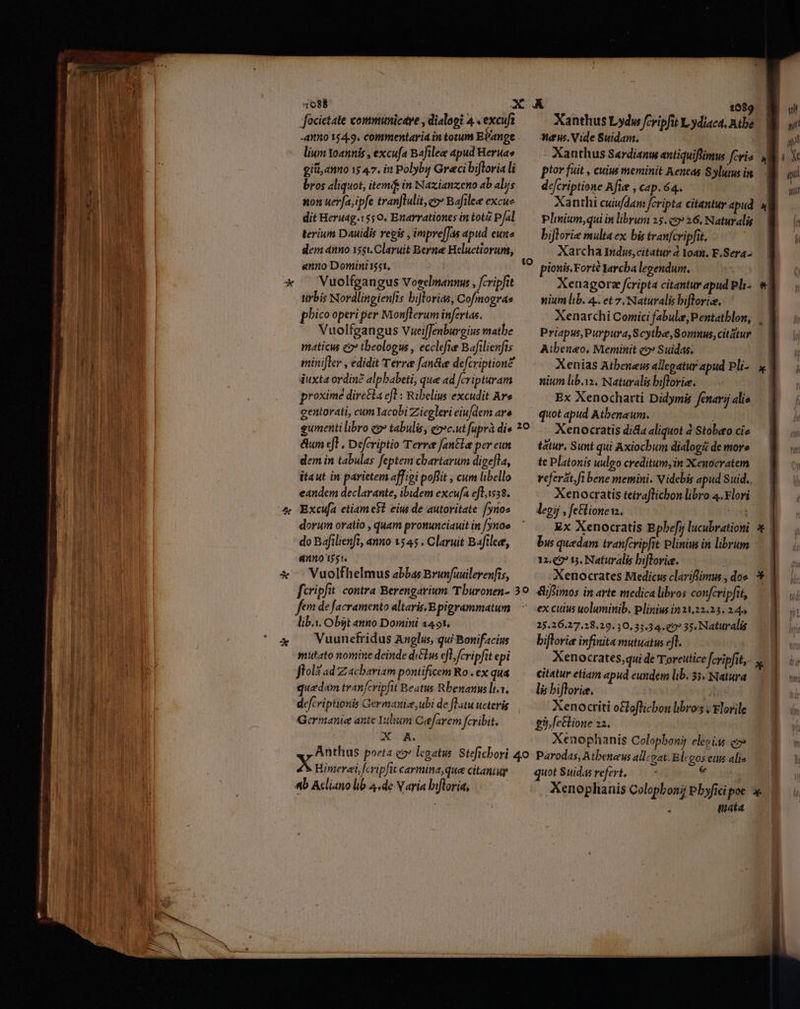 1088 X A 1089
ſocietate communicāre, dialogi 4. excuſi
anno 1549. commentaria in totum Euange
lium Ioannis, excuſa Baſileæ apud Herua
giū, anno 1547. in Polybij Græci hiſtoria li
bros aliquot, itemq́ in Nazianzeno ab alijs
non uerſa, ipſe tranſtulit, & Baſileæ excu
dit Heruag. 1550. Enarrationes in totū Pſal
terium Dauidis regis, impreſſas apud eun
dem anno 1551. Claruit Bernæ Heluetiorum,
anno Domini 1551.
* Vuolfgangus Vogelmannus, ſcripſit
urbis Nordlingienſis hiſtorias, Coſmogra
phico operi per Monſterum inſertas.
Vuolfgangus Vueiſſenburgius mathe
maticus & theologus, eccleſiæ Baſilienſis
miniſter, edidit Terræ ſanctæ deſcriptionē
iuxta ordinē alphabeti, quæ ad ſcripturam
proximè directa eſt: Ribelius excudit Ar
gentorati, cum Iacobi Ziegleri eiuſdem ar
gumenti libro & tabulis, &c. ut ſuprà di
ctum eſt. Deſcriptio Terræ ſanctæ per eun
dem in tabulas ſeptem chartarum digeſta,
ita ut in parietem affigi poſſit, cum libello
eandem declarante, ibidem excuſa eſt, 1538.
* Excuſa etiam eſt eius de autoritate ſyno
dorum oratio, quam pronunciauit in ſyno
do Baſilienſi, anno 1545. Claruit Baſileæ,
anno 1551.
* Vuolfhelmus abbas Brunſuuilerenſis,
ſcripſit contra Berengarium Thuronen- 30
ſem de ſacramento altaris. Epigrammatum
lib. 1. Obijt anno Domini 1091.
* Vuunefridus Anglus, qui Bonifacius
mutato nomine deinde dictus eſt, ſcripſit epi
ſtolā ad Zachariam pontificem Ro. ex qua
quædam tranſcripſit Beatus Rhenanus li. 1.
deſcriptionis Germaniæ, ubi de ſtatu ueteris
Germaniæ ante Iulium Cæſarem ſcribit.
X A.
Xanthus poeta & legatus Steſichori 40
Himeræi, ſcripſit carmina, quæ citantur
ab Aeliano lib. 4. de Varia hiſtoria.
Xanthus Lydus ſcripſit Lydiaca. Athe
næus. Vide Suidam.
Xanthus Sardianus antiquiſſimus ſcri
ptor fuit, cuius meminit Aeneas Syluius in
deſcriptione Aſiæ, cap. 64.
Xanthi cuiuſdam ſcripta citantur apud
Plinium, qui in librum 25. & 26. Naturalis
hiſtoriæ multa ex his tranſcripſit.
Xarcha Indus, citatur à Ioan. F. Sera
10 pionis. Fortè Iarcha legendum.
Xenagoræ ſcripta citantur apud Pli- *
nium lib. 4. et 7. Naturalis hiſtoriæ.
Xenarchi Comici fabulæ, Pentathlon,
Priapus, Purpura, Scythæ, Somnus, citātur
Athenæo. Meminit & Suidas.
Xenias Athenæus allegatur apud Pli- *
nium lib. 12. Naturalis hiſtoriæ.
Ex Xenocharti Didymis ſenarij ali
quot apud Athenæum.
20 Xenocratis dicta aliquot à Stobæo ci
tātur. Sunt qui Axiochum dialogū de mor
te Platonis uulgo creditum, in Xenocratem
referāt, ſi bene memini. Videbis apud Suid.
Xenocratis tetraſtichon libro 4. Flori
legij, ſectione 12.
Ex Xenocratis Epheſij lucubrationi *
bus quædam tranſcripſit Plinius in librum
12. & 13. Naturalis hiſtoriæ.
Xenocrates Medicus clariſſimus, do *
ctiſſimos in arte medica libros conſcripſit,
ex cuius uoluminib. Plinius in 21. 22. 23. 24.
25. 26. 27. 28. 29. 30. 33. 34. & 35. Naturalis
hiſtoriæ infinita mutuatus eſt.
Xenocrates, qui de Toreutice ſcripſit, *
citatur etiam apud eundem lib. 33. Natura
lis hiſtoriæ.
Xenocriti octoſtichon libro 3. Florile
gij, ſectione 22.
Xenophanis Colophonij elegias &
Parodas, Athenæus allegat. Elegos eius ali
quot Suidas refert.
Xenophanis Colophonij Phyſici poe *
mata